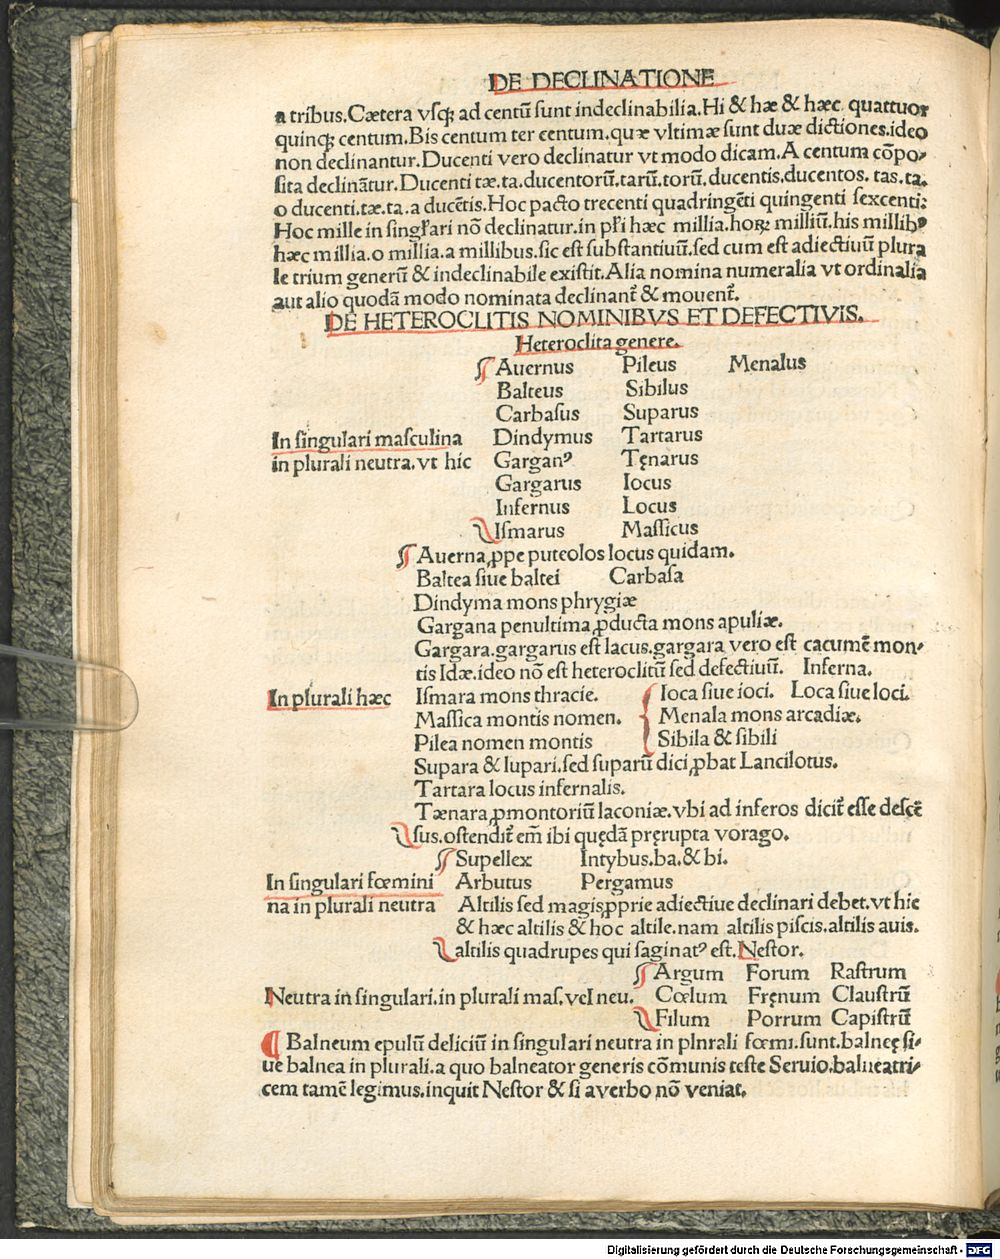 DE DECLINATIONE
a tribus.Cætera vsq; ad centū sunt indeclinabilia.Hi & hæ & hæc quattuor
quinq; centum.Bis centum ter centum.quæ vltimæ sunt duæ dictiones.ideo
non declinantur.Ducenti vero declinatur vt modo dicam.A centum cōpo-
sita declināntur.Ducenti tæ.ta.ducentorū.tarū.torū.ducentis.ducentos. tas.ta.
o ducenti.tæ.ta.a ducētis.Hoc pacto trecenti quadringēti quingenti sexcenti:
Hoc mille in singl'ari nō declinatur.in pl'i hæc millia.horꝝ milliū.his millibꝰ
hæc millia.o millia.a millibus.sic est substantiuū.sed cum est adiectiuū plura
le trium generū & indeclinabile existit.Alia nomina numeralia vt ordinalia
aut alio quodā modo nominata declinant̄ & mouent̄.
DE HETEROCLITIS NOMINIBVS ET DEFECTIVIS.
Heteroclita genere.
Auernus Pileus Menalus
Balteus Sibilus
Carbasus Suparus
In singulari masculina Dindymus Tartarus
in plurali neutra.vt hic Garganꝰ Tęnarus
Gargarus Iocus
Infernus Locus
Ismarus Massicus
Auerna ꝓpe puteolos locus quidam.
Baltea siue baltei Carbasa
Dindyma mons phrygiæ
Gargana penultima ꝓducta mons apuliæ.
Gargara.gargarus est lacus.gargara vero est cacumē mon-
tis Idæ.ideo nō est heteroclitū sed defectiuū. Inferna.
In plurali hæc Ismara mons thracie. Ioca siue ioci. Loca siue loci.
Massica montis nomen. Menala mons arcadiæ.
Pilea nomen montis Sibila & sibili
Supara & lupari.sed suparū dici ꝓbat Lancilotus.
Tartara locus infernalis.
Tænara ꝓmontoriū laconiæ.vbi ad inferos dicit̄ esse descē
sus.ostendit̄ em̄ ibi quędā pręrupta vorago.
Supellex Intybus.ba.& bi.
In singulari fœmini Arbutus Pergamus
na in plurali neutra Altilis sed magis ꝓprie adiectiue declinari debet.vt hic
& hæc altilis & hoc altile.nam altilis piscis.altilis auis.
altilis quadrupes qui saginatꝰ est.Nestor.
Argum Forum Rastrum
Neutra in singulari.in plurali mas.vel neu. Cœlum Fręnum Claustrū
Filum Porrum Capistrū
¶ Balneum epulū deliciū in singulari neutra in plnrali fœmi.sunt.balneę si-
ue balnea in plurali.a quo balneator generis cōmunis teste Seruio.balneatri-
cem tamē legimus.inquit Nestor & si a verbo nō veniat.
Digitalisierung gefördert durch die Deutsche Forschungsgemeinschaft - DFG